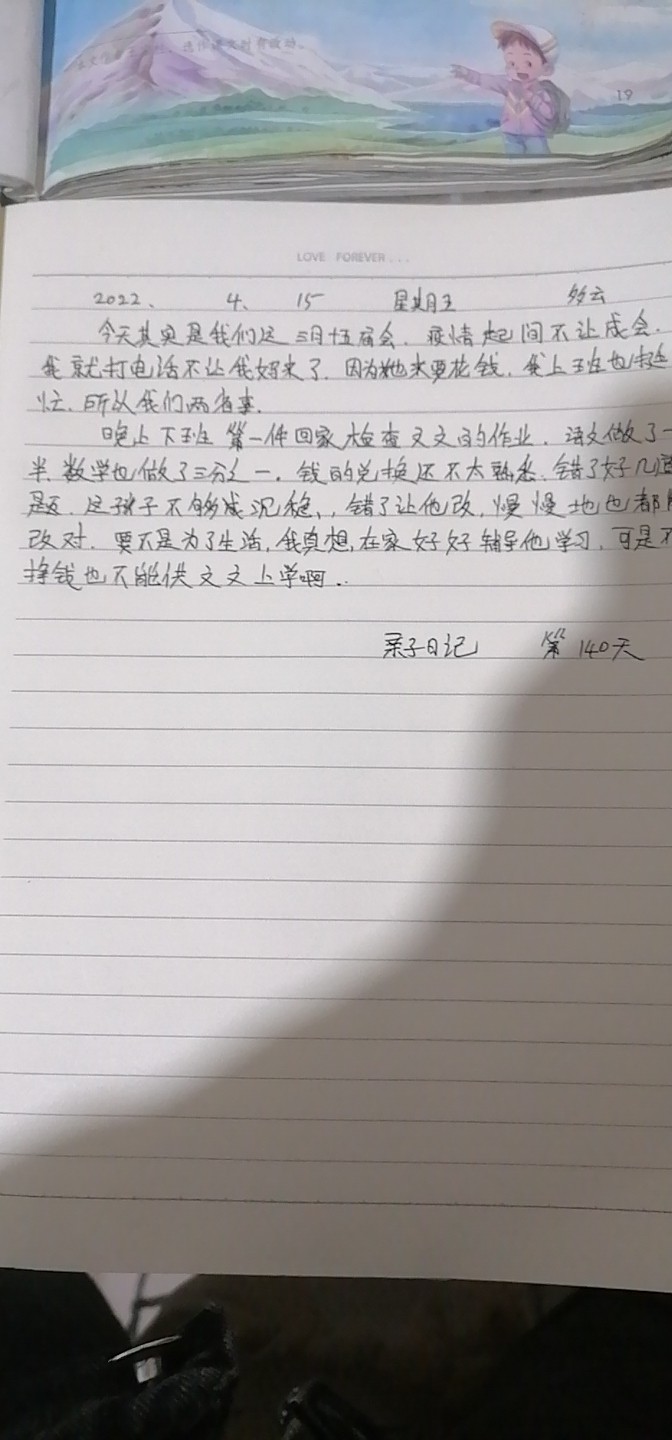 选作课文时有改动。
19
LOVE FOREVER...
2022、 4、 15 星期五 多云
今天其实是我们这三月十五庙会，疫情起间不让成会，
我就打电话不让我妈来了，因为她来要花钱，我上班也挺
忙，所以我们两省事，
晚上下班第一件回家检查文文的作业，语文做了一
半，数学也做了三分之一，钱的兑换还不太熟悉，错了好几道
题，这孩子不够成沉稳，，错了让他改，慢慢地也都
改对，要不是为了生活，我真想，在家好好辅导他学习，可是不
挣钱也不能供文文上学啊..
亲子日记 第140天